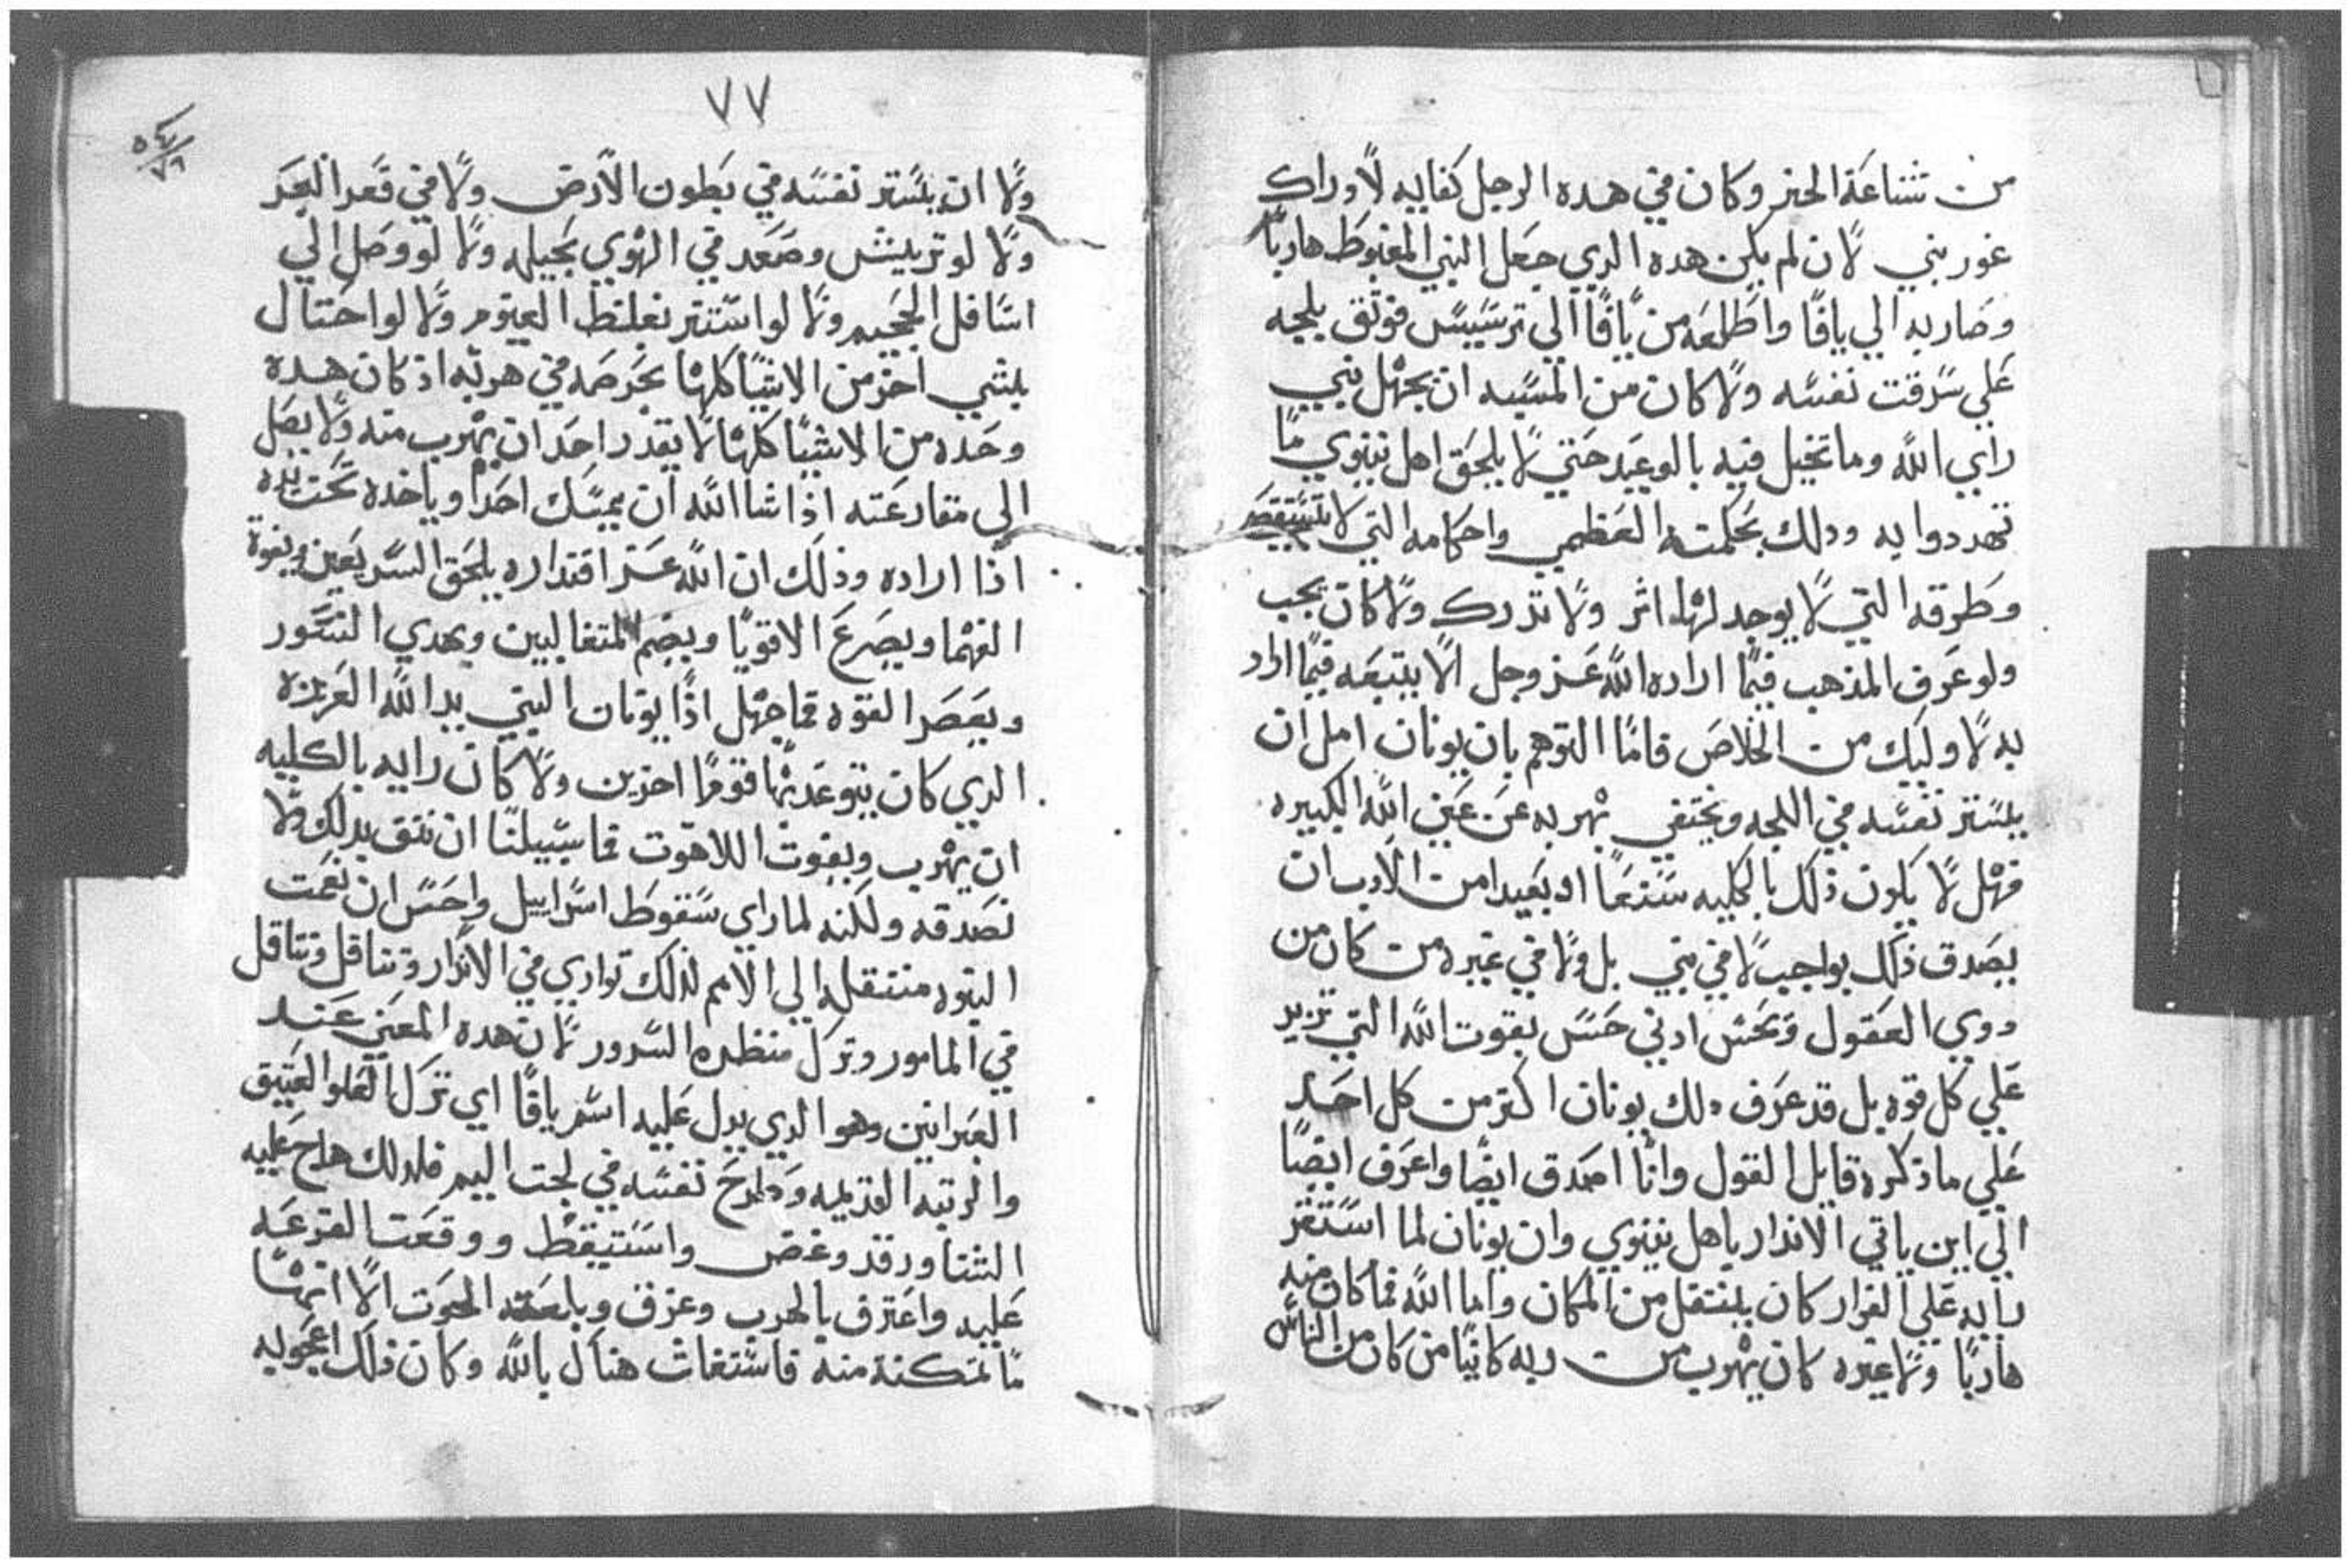 من شناعة الحبر وكان في هده الرجل كفايه لاوراك
غوربني لان لم يكن هده الدي جعل النبي المغبوط هاربًا
وصار به الي يافا واطلعه من يافا الي ترسيس فوثق بلجه
علي سرقت نفسه ولا كان من المسيه ان يجهل نبي
راي الله وما تخيل فيه بالوعيد حتي لا يلحق اهل نينوي ما
تهددوا به ودلك بحكمته العظمي واحكامه التي لا تستقصَ
وطرقه التي لا يوجد لها اثر ولا تدرك ولا كان يجب
ولو عرف المذهب فيما اراده الله عز وجل الا يتبعه فيما اراد
به لاوليك من الخلاص فاما التوهم بان يونان امل ان
يلستتر نفسه في اللجه ويختفي بهربه عن عين الله الكبيره
فهل لا يكون ذلك بالكليه شنعًا اد بعيدا من الادب ان
يصدق ذلك بواجب لا في نبي بل ولا في غيره من كان من
دوي العقول ويحس ادني حس بقوت الله التي تزيد
علي كل قوه بل قد عرف دلك يونان اكتر من كل احد
علي ما ذكره قايل القول وانا اصدق ايضًا واعرف ايضًا
الي اين ياتي الاندار ياهل نينوي وان يونان لما استقر
رايه علي الفرار كان بلنتقل من المكان واما الله فما كان منه
هاربًا ولا غيره كان يهرب من ربه كاينًا من كان من الناس
٧٧
٥٤
٧٦
ولا ان يلستتر نفسه في بطون الارض ولا في قعر البحر
ولا لو تريش وصعد في الهوي بحيله ولا لو وصل الي
اسافل الجحيم ولا لو استتر بغلظ الغيوم ولا لو احتال
بشي اخر من الاشيا كلها بحرصه في هربه اد كان هده
وحده من الاشيا كلها لا يقدر احد ان يهرب منه ولا يصل
الي مقارعته اذا شا الله ان يمسك احدًا وياخده تحت يده
اذا اراده وذلك ان الله عز اقتداره يلحق السريعين ويفوة
الفهما ويصرع الاقويا ويضم المتغالبين ويهدي التسور
ويعصر القوه فما جهل اذًا يونان النبي يد الله العزيزه
الدي كان يتوعد بها قومًا اخرين ولا كان رايه بالكليه
ان يهرب ويفوت اللاهوت فما سبيلنا ان نثق بدلك ولا
نصدقه ولكنه لما راي سقوط اسراييل واحس ان نعمت
النبوه منتقله الي الامم لذلك تواري في الاندار وتناقل وتتاقل
في المامور وترك منظره السرور لان هده المعني عند
العبرانين وهو الدي يدل عليه اسم يافا اي ترك العلو العتيق
والرتبه القديمه وطرح نفسه في لجت اليم فلدلك هاج عليه
الشتا ورقد وغض واستيقظ ووقعت القرعه
عليه واعترف بالهرب وغرق وبلعته الحوت الا انها
ما تمكنة منه فاستغاث هناك بالله وكان ذلك اعجوبه